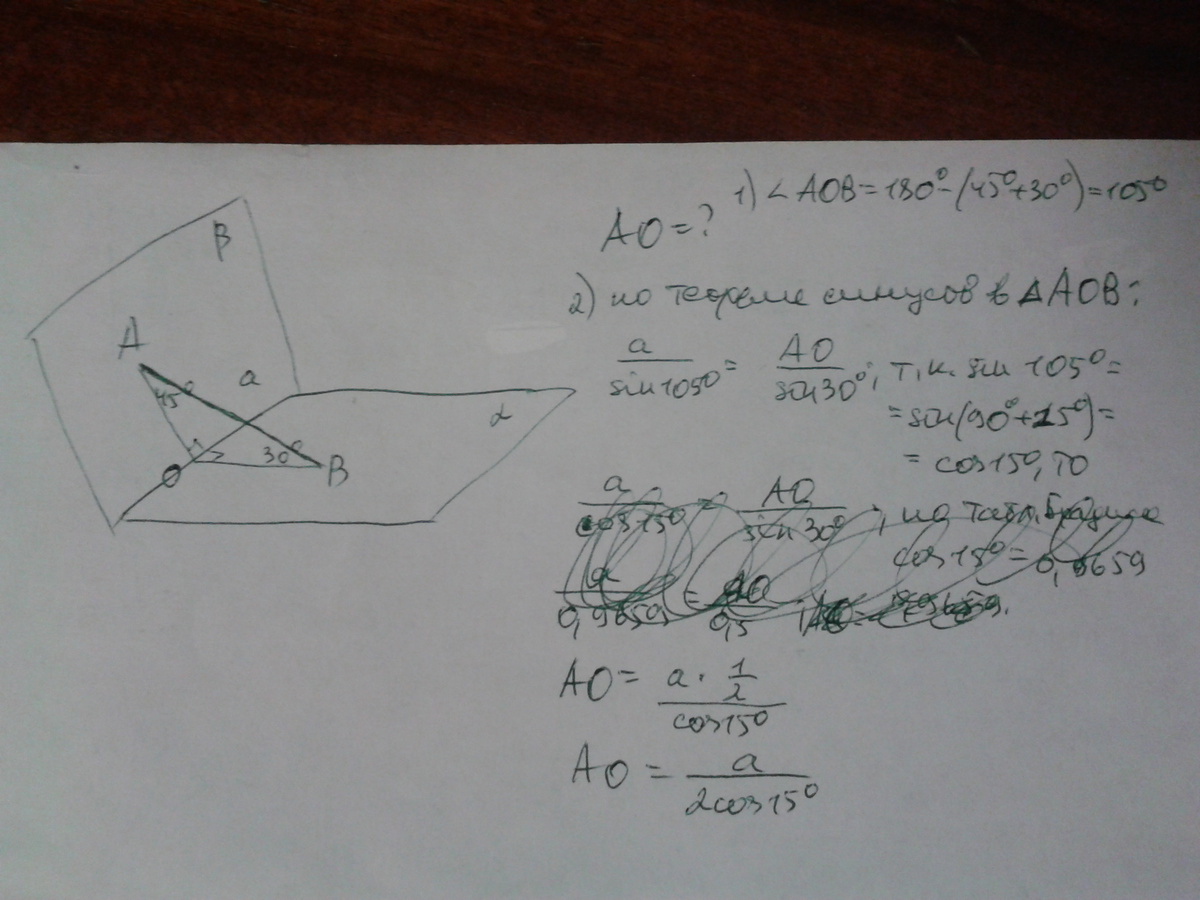 β
A
a
45°
α
30°
O
B
AO = ?
1) ∠ AOB = 180° - (45° + 30°) = 105°
2) по теореме синусов в △AOB:
a/sin105° = AO/sin30°; т.к. sin 105° =
= sin(90° + 15°) =
= cos15°, то
a/cos15° = AO/sin30°; по табл. Брадиса
cos15° = 0,9659
a/0,9659 = AO/0,5
AO = (a · 1/2)/cos15°
AO = a/2cos15°